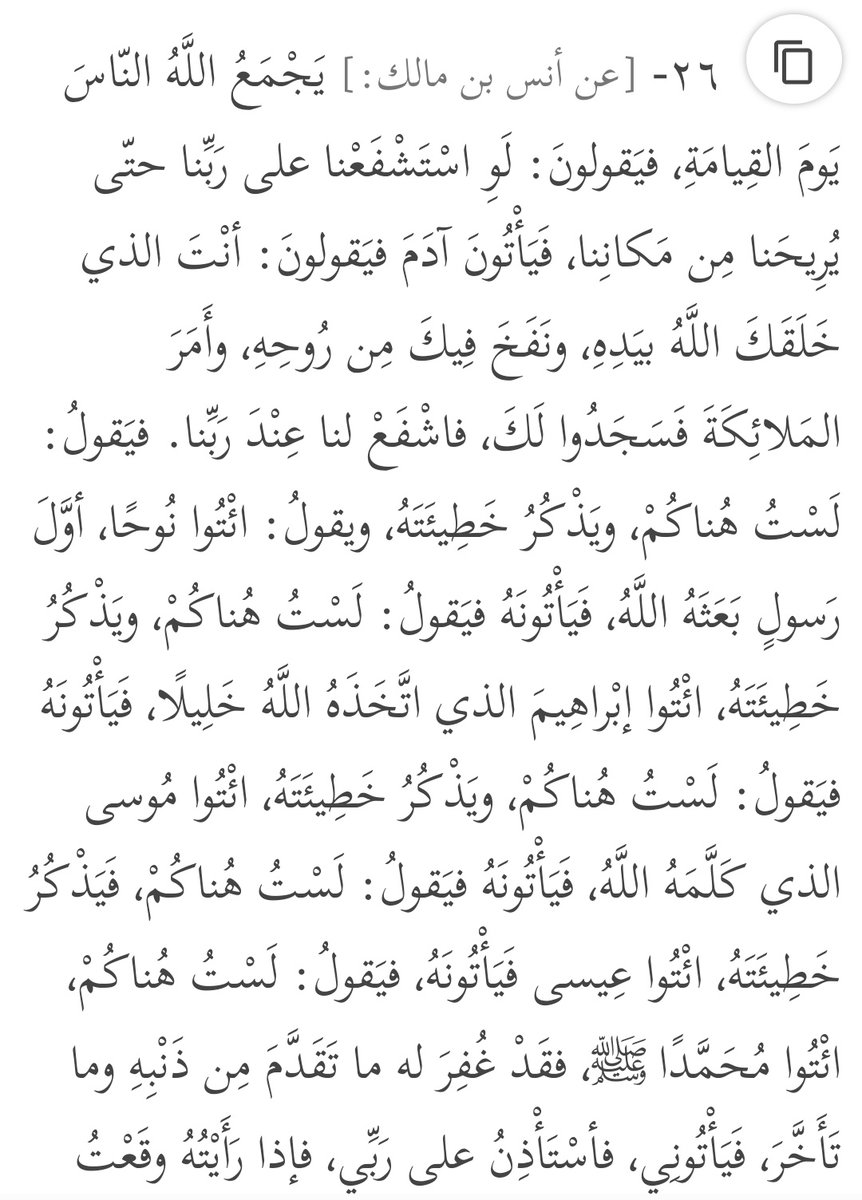 ٢٦- [عن أنس بن مالك:] يَجْمَعُ اللَّهُ النّاسَ
يَومَ القِيامَةِ، فيَقولونَ: لَوِ اسْتَشْفَعْنا على رَبِّنا حتّى
يُرِيحَنا مِن مَكانِنا، فَيَأْتُونَ آدَمَ فيَقولونَ: أنْتَ الذي
خَلَقَكَ اللَّهُ بيَدِهِ، ونَفَخَ فِيكَ مِن رُوحِهِ، وأَمَرَ
المَلائِكَةَ فَسَجَدُوا لَكَ، فاشْفَعْ لنا عِنْدَ رَبِّنا. فيَقولُ:
لَسْتُ هُناكُمْ، ويَذْكُرُ خَطِيئَتَهُ، ويقولُ: ائْتُوا نُوحًا، أوَّلَ
رَسولٍ بَعَثَهُ اللَّهُ، فَيَأْتُونَهُ فيَقولُ: لَسْتُ هُناكُمْ، ويَذْكُرُ
خَطِيئَتَهُ، ائْتُوا إبْراهِيمَ الذي اتَّخَذَهُ اللَّهُ خَلِيلًا، فَيَأْتُونَهُ
فيَقولُ: لَسْتُ هُناكُمْ، ويَذْكُرُ خَطِيئَتَهُ، ائْتُوا مُوسى
الذي كَلَّمَهُ اللَّهُ، فَيَأْتُونَهُ فيَقولُ: لَسْتُ هُناكُمْ، فَيَذْكُرُ
خَطِيئَتَهُ، ائْتُوا عِيسى فَيَأْتُونَهُ، فيَقولُ: لَسْتُ هُناكُمْ،
ائْتُوا مُحَمَّدًا ﷺ، فقَدْ غُفِرَ له ما تَقَدَّمَ مِن ذَنْبِهِ وما
تَأَخَّرَ، فَيَأْتُونِي، فأسْتَأْذِنُ على رَبِّي، فإذا رَأَيْتُهُ وقَعْتُ